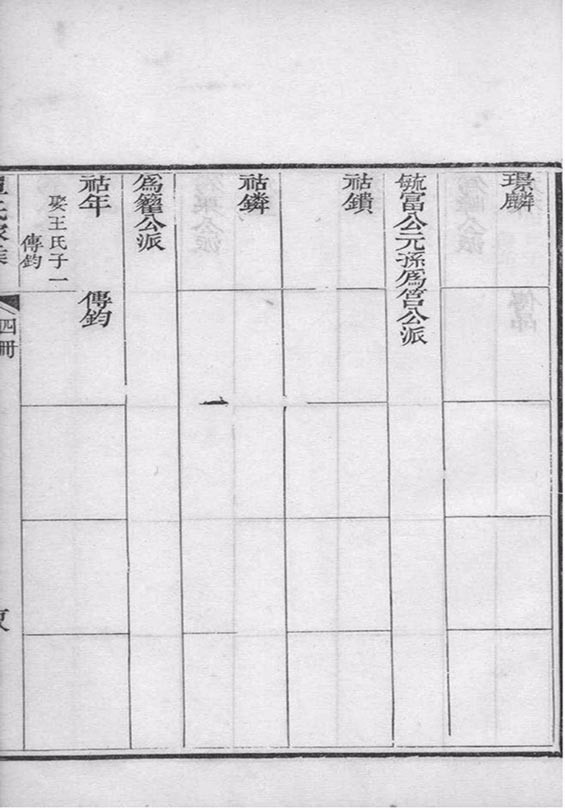 璟麟
毓富公元孫為管公派
祜鐀
祜鏻
為籊公派
祜年
傳鈞
娶王氏子一
傳鈞
四冊